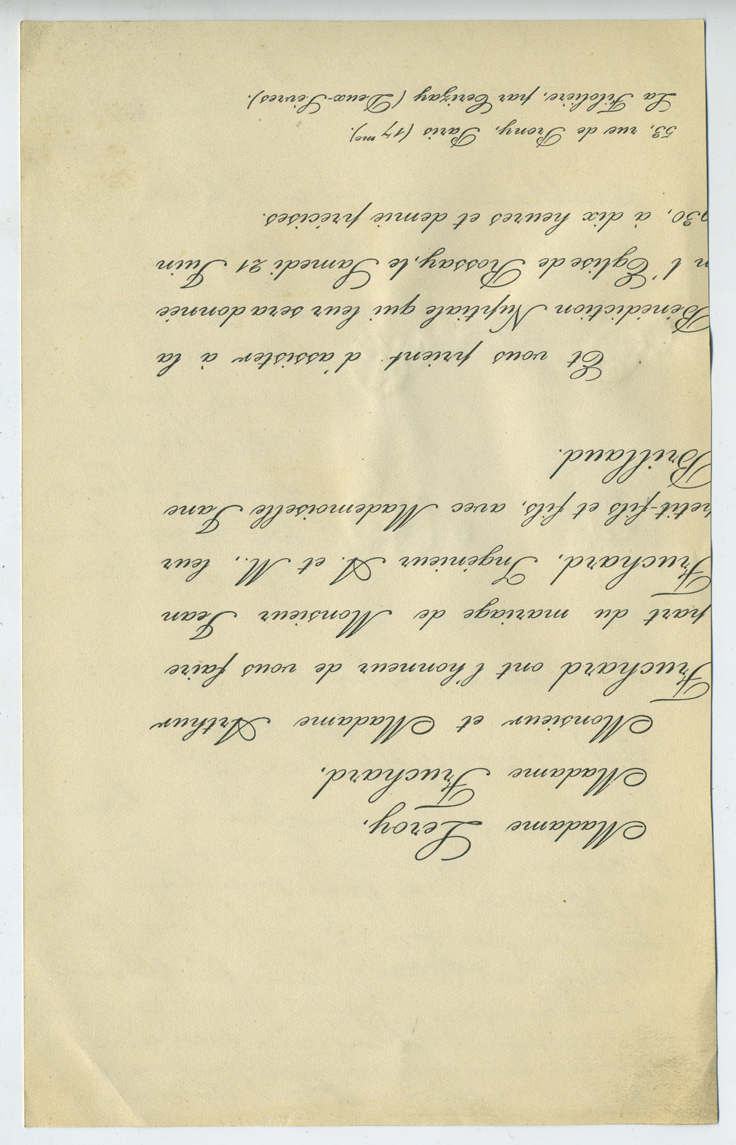 Madame Leroy,
Madame Fruchard,
Monsieur et Madame Arthur
Fruchard ont l'honneur de vous faire
part du mariage de Monsieur Jean
Fruchard, Ingénieur A. et M., leur
petit-fils et fils, avec Mademoiselle Jane
Brillaud.
Et vous prient d'assister à la
Bénédiction Nuptiale qui leur sera donnée
n l'Eglise de Rossay, le Samedi 21 Juin
930, à dix heures et demie précises.
53, rue de Prony, Paris (17me).
La Filolière, par Cerizay (Deux-Sèvres).